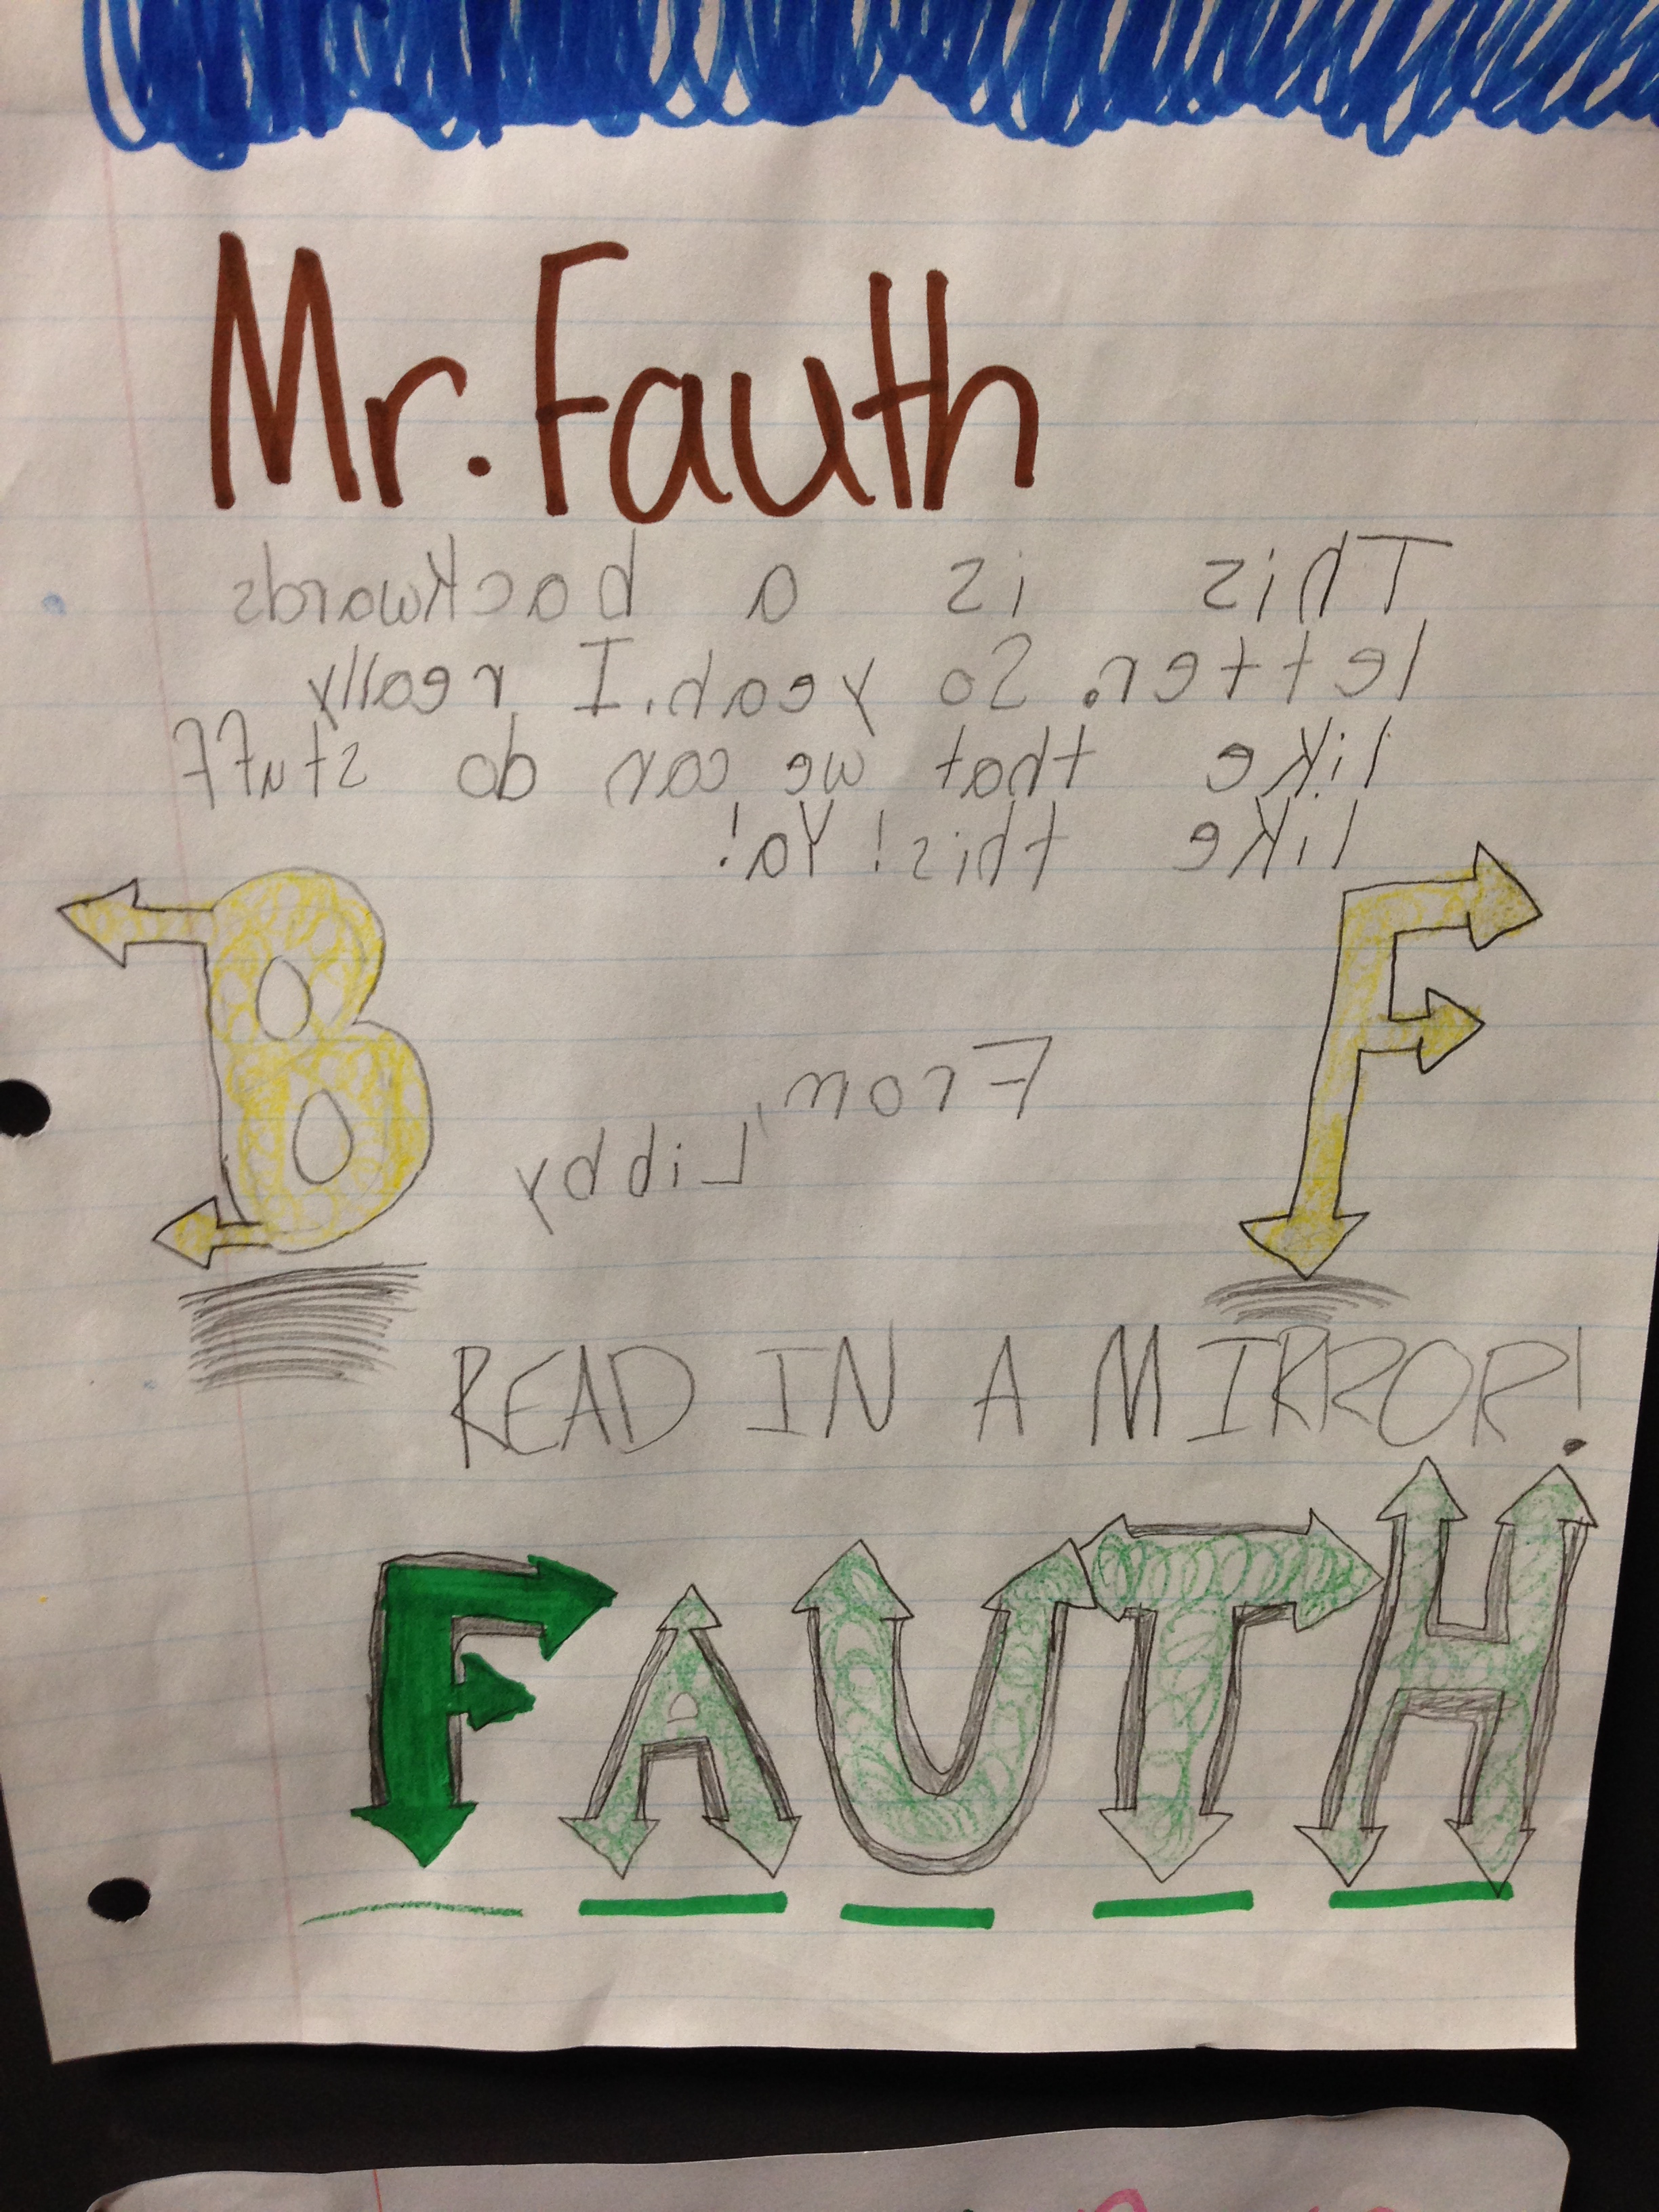 Mr. Fauth
This is a backwards
letter. So yeah. I really
like that we can do stuff
like this! Ya!
B F
From,
Libby
READ IN A MIRROR!
FAUTH